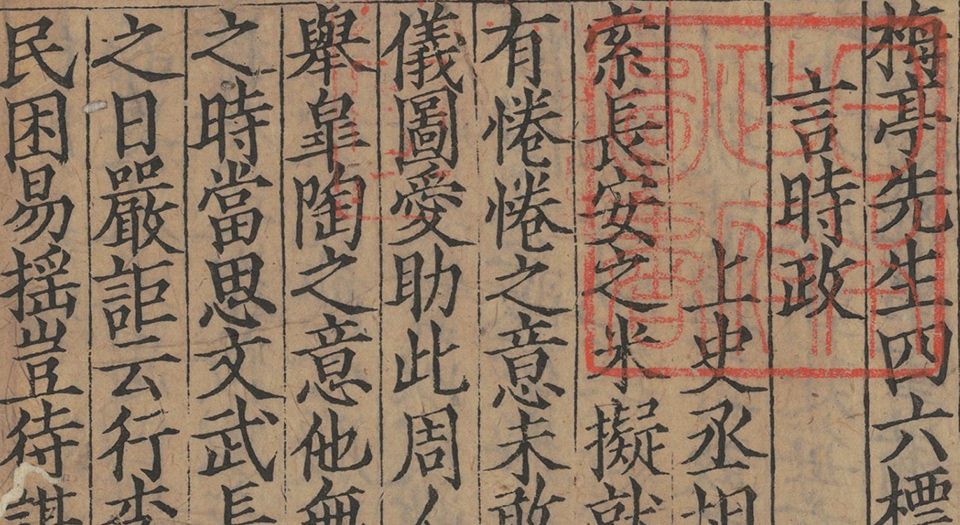 梅亭先生四六標
言時政
上史丞相
索長安之米擬就
有惓惓之意未敢
儀圖愛助此周人
舉臯陶之意他無
之時當思文武長
之日嚴詎云行李
民困易揺豈待